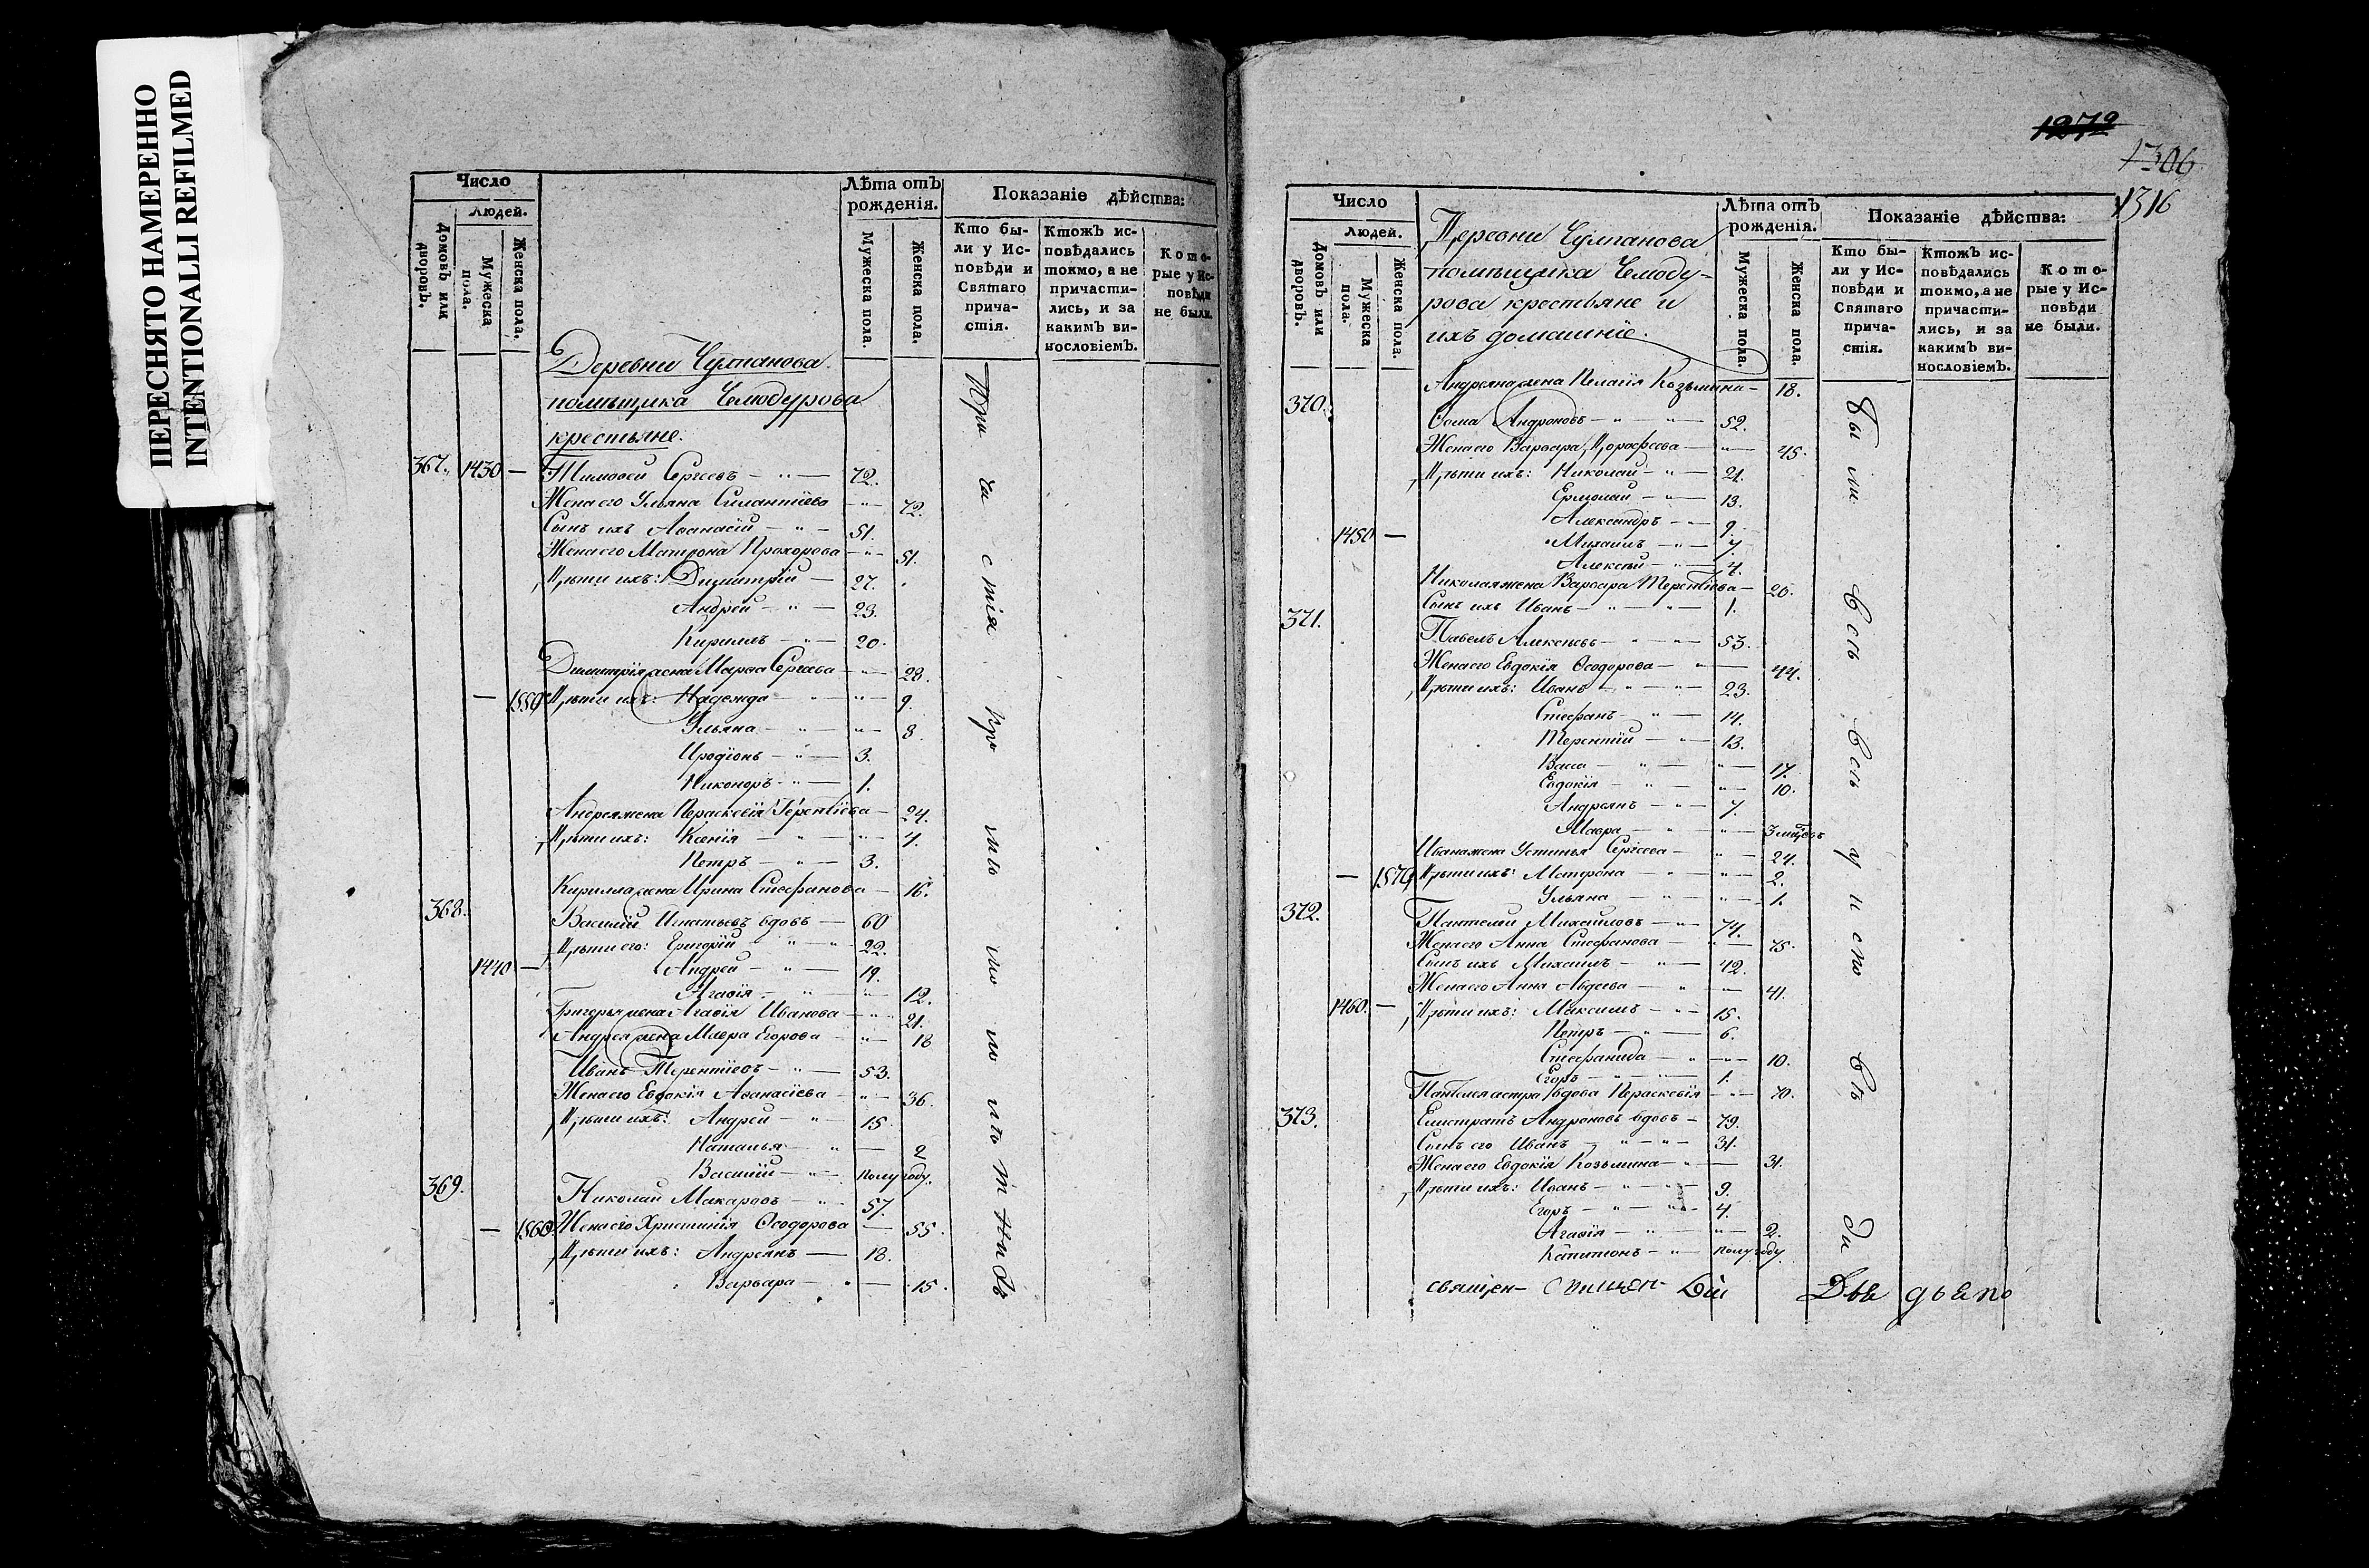 ПЕРЕСНЯТО НАМЕРЕННО
INTENTIONALLI REFILMED
Число
Людей.
Домовъ или дворовъ.
Мужеска пола.
Женска пола.
Лѣта отъ рожденія.
Мужеска пола.
Женска пола.
Показаніе дѣйства:
Кто были у Исповѣди и Святаго причастія.
Ктожъ исповѣдались токмо, а не причастились, и за какимъ винословіемъ.
Которые у Исповѣди не были.
Деревни Чулпанова
помѣщика Чемодурова
крестьяне.
367. 1430 — Тимоѳей Сергеевъ — 72.
Жена его Ульяна Силантіева — 72.
Сынъ ихъ Аѳанасій — 51.
Жена его Матрона Прохорова — 51.
Дѣти ихъ: Димитрій — 27.
Андрей — 23.
Кириллъ — 20.
Димитрія жена Марѳа Сергѣева — 28.
— Дѣти ихъ: Надежда — 9.
Ульяна — 8.
Иродіонъ — 3.
Никоноръ — 1.
Андрея жена Параскевія Терентіева — 24.
Дѣти ихъ: Ксенія — 4.
Петръ — 3.
Кирилла жена Ирина Стефанова — 16.
368. Василій Игнатьевъ вдовъ — 60
Дѣти его: Григорій — 22.
1440 — Андрей — 19.
Агаѳія — 12.
Григорья жена Агаѳія Иванова — 21.
Андрея жена Мавра Егорова — 18
Иванъ Терентіевъ — 53.
Жена его Евдокія Аѳанасіева — 36.
Дѣти ихъ: Андрей — 15
Наталья — 2
Василій — полугоду.
369. Николай Макаровъ — 57.
— 1560 Жена его Христинія Ѳеодорова — 55.
Дѣти ихъ: Андреянъ — 18.
Варвара — 15.
1272
1306
1316
Число
Людей.
Домовъ или дворовъ.
Мужеска пола.
Женска пола.
Деревни Чулпанова
помѣщика Чемоду-
рова крестьяне и
ихъ домашніе.
Лѣта отъ рожденія.
Мужеска пола.
Женска пола.
Показаніе дѣйства:
Кто были у Исповѣди и Святаго причастія.
Ктожъ исповѣдались токмо, а не причастились, и за какимъ винословіемъ.
Которые у Исповѣди не были.
Андреяна жена Пелагія Козьмина — 18.
370. Ѳома Андроновъ — 52.
Жена его Варвара Дорофеева — 45.
Дѣти ихъ: Николай — 21.
Ермолай — 13.
Александръ — 9.
1450 — Михаилъ — 7.
Алексѣй — 4.
Николая жена Варвара Терентіева — 20.
Сынъ ихъ Иванъ — 1.
371. Павелъ Алексѣевъ — 53.
Жена его Евдокія Ѳеодорова — 44.
Дѣти ихъ: Иванъ — 23.
Стефанъ — 14.
Терентій — 13.
Васса — 17.
Евдокія — 10.
Андреянъ — 7.
Мавра — 3 мѣсцовъ
Ивана жена Устинья Сергѣева — 24.
— 1570 Дѣти ихъ: Матрона — 2.
Ульяна — 1.
372. Пантелей Михайловъ — 74.
Жена его Анна Стефанова — 75.
Сынъ ихъ Михаилъ — 42.
Жена его Анна Авдеева — 41.
1460. — Дѣти ихъ: Максимъ — 15.
Петръ — 6.
Стефанида — 10.
Егоръ — 1.
Пантелея сестра вдова Параскевія — 70.
373. Елистратъ Андроновъ вдовъ — 79.
Сынъ его Иванъ — 31.
Жена его Евдокія Козьмина — 31.
Дѣти ихъ: Иванъ — 9.
Егоръ — 4.
Агаѳія — 2.
Капитонъ — полугоду.